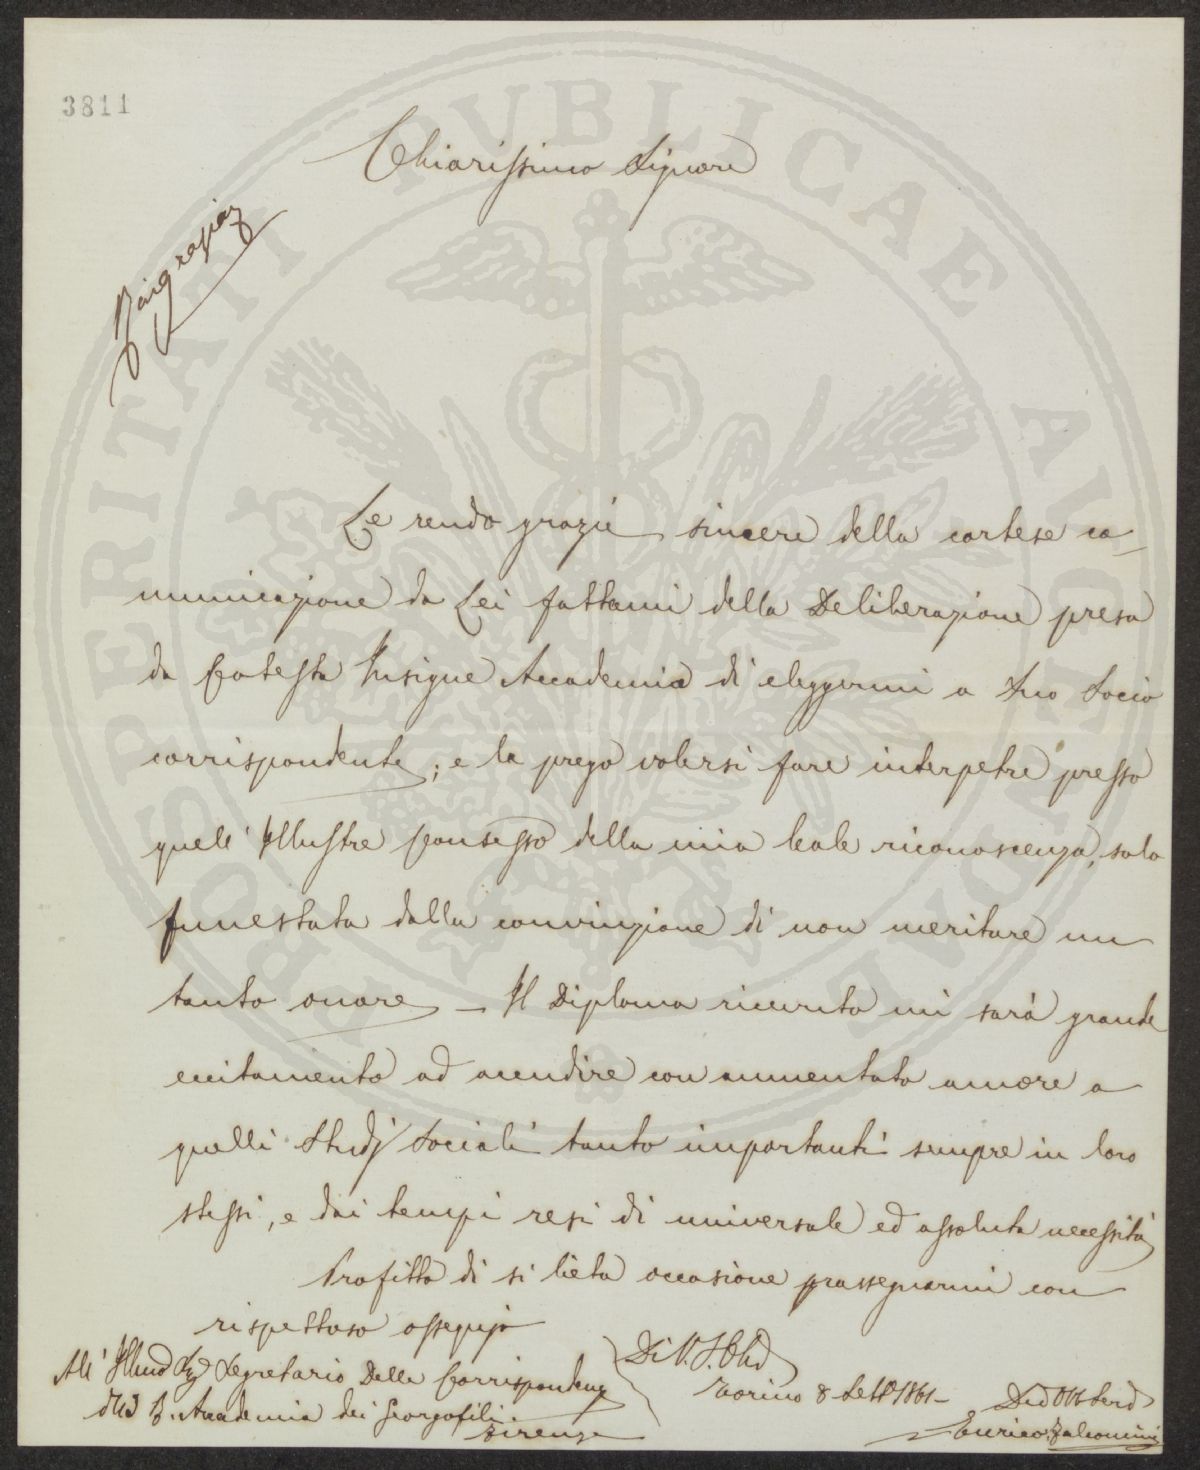 3811
Chiarissimo Signore
Ringraziaz
PROSPERITATI PVBLICAE AVGENDAE
Le rendo grazie sincere della cortese co-
municazione da Lei fattami della Deliberazione presa
da Cotesta Insigne Accademia di eleggermi a Suo Socio
corrispondente; e la prego volersi fare interpetre presso
quell' Illustre Consesso della mia leale riconoscenza, solo
funestata dalla convinzione di non meritare un
tanto onore — Il Diploma ricevuto mi sarà grande
eccitamento ad accudire con aumentato amore a
quelli Studj Sociali tanto importanti sempre in loro
stessi, e dai tempi resi di universale ed assoluta necessità
Profitto di si lieta occasione prassegnarmi con
rispettoso ossequio
Di V. S. Illma
Torino 8 Sett 1861 —
All' Illmo Sig Segretario Delle Corrispondenze
della R. Accademia dei Georgofili
Firenze
Dev Obb Servo
Enrico Falconcini